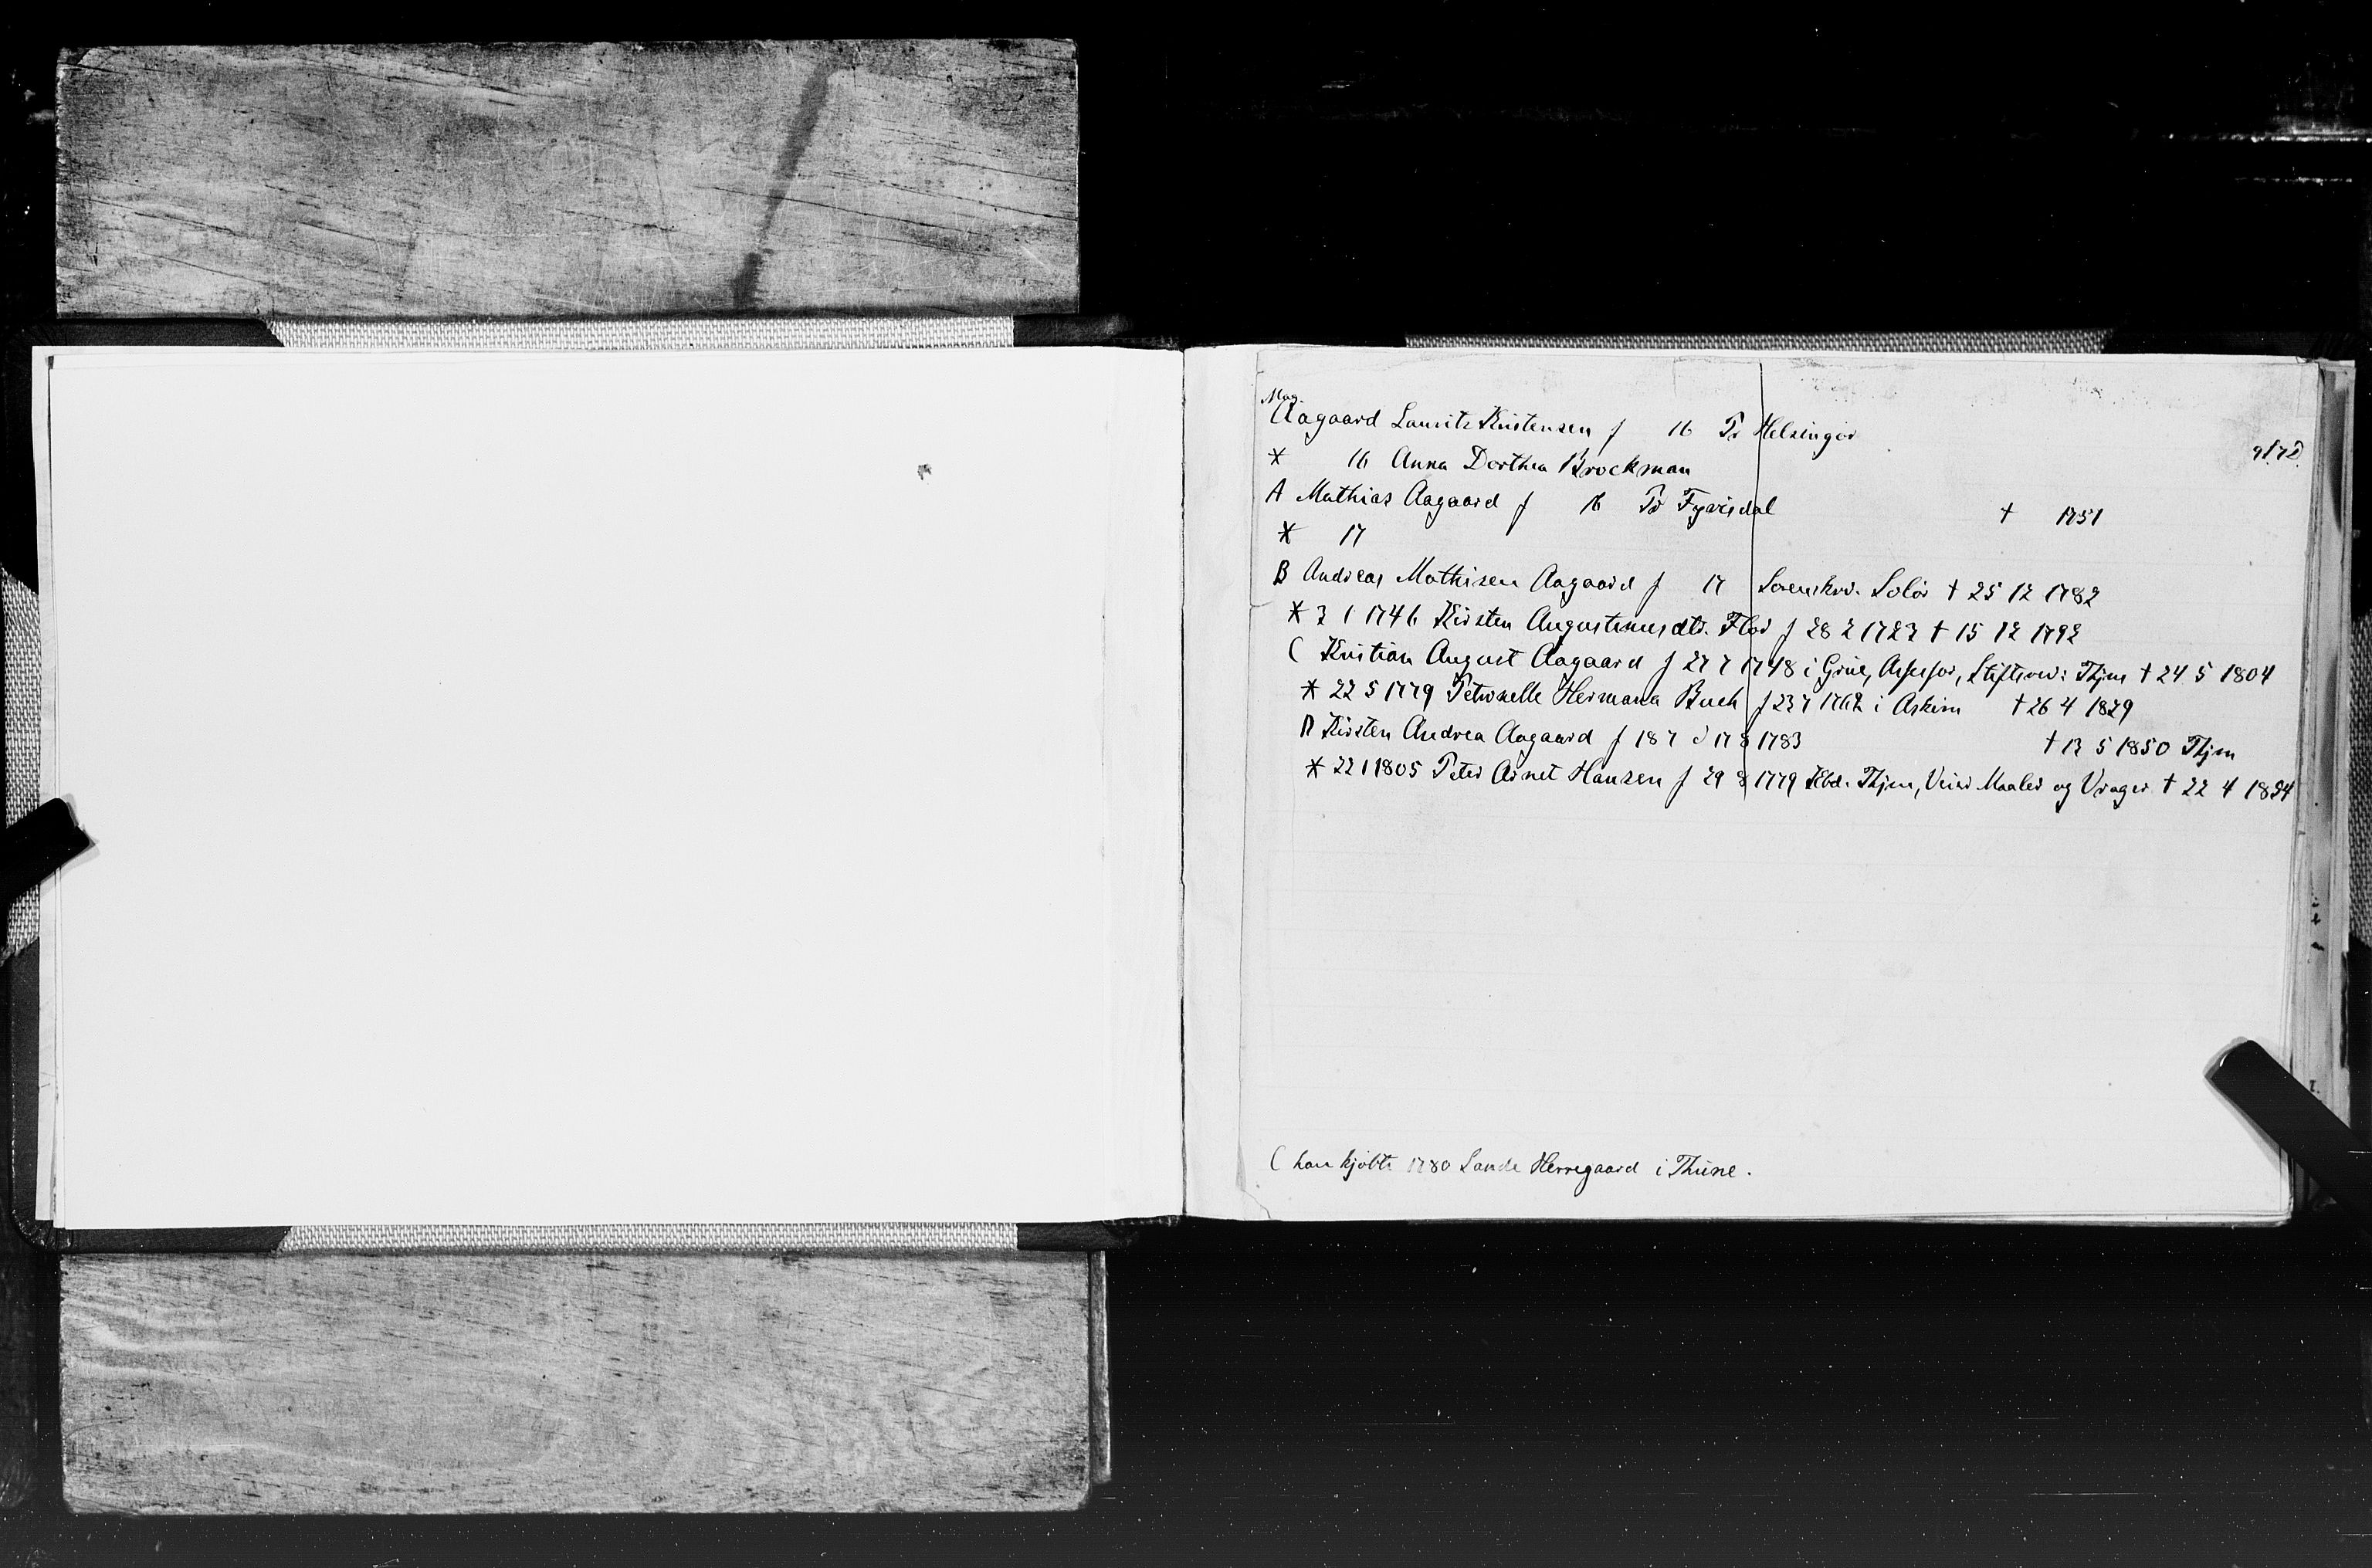 Mag.
Aagaard Lauritz Kristensen f 16 Pr Helsingør
* 16 Anna Dorthea Brockman
A Mathias Aagaard f 16 Pr Fyrisdal † 1751
* 17
B Andreas Mathisen Aagaard f 17 Sorenskr. Solør † 25 12 1782
* 3 1 1746 Kirsten Augustinusdtr. Flor f 28 2 1723 † 15 12 1792
C Kristian August Aagaard f 27 7 1748 i Grue, Assessor, Stiftsrev: Thjm † 24 5 1804
* 22 5 1779 Petronelle Hermana Buch f 23 7 1762 i Askim † 26 4 1829
D Kirsten Andrea Aagaard f 18 7 d 17 8 1783 † 13 5 1850 Thjm
* 22 1 1805 Peter Arnet Hansen f 29 8 1779 Kbd. Thjm, Veier Maaler og Vrager † 22 4 1834
C han kjøbte 1780 Lande Herregaard i Thune.